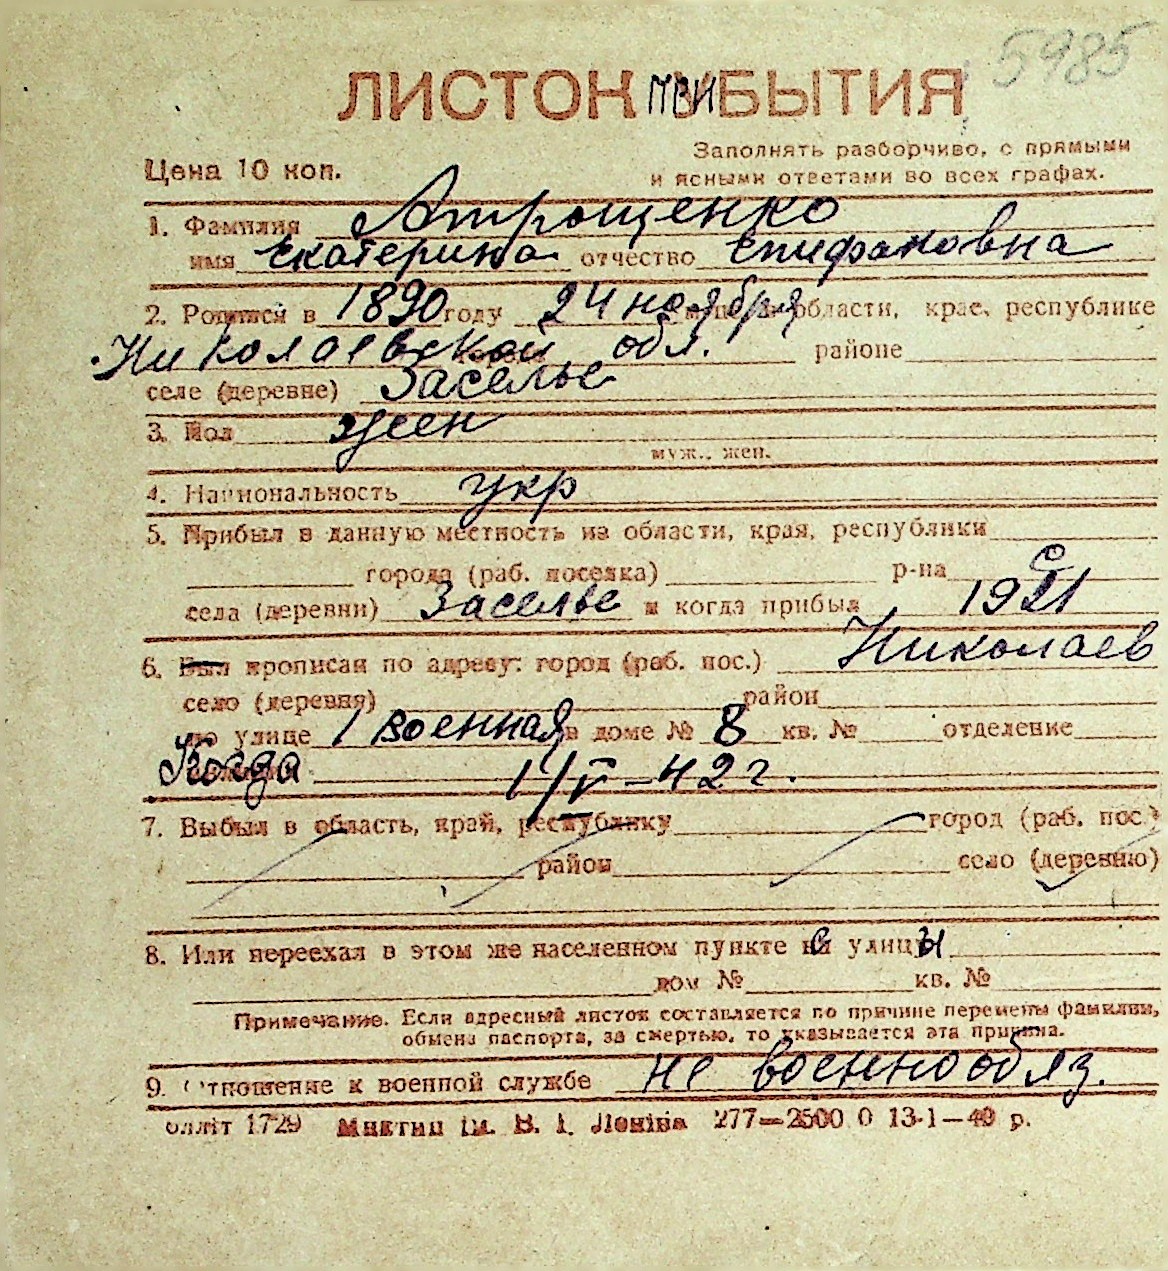 5985
ЛИСТОК ПРИБЫТИЯ
Цена 10 коп.
Заполнять разборчиво, с прямыми
и ясными ответами во всех графах.
1. Фамилия Атрощенко
имя Екатерина отчество Епифановна
2. Родился в 1890 году 24 ноября области, крае, республике
Николаевской обл. районе
селе (деревне) Заселье
3. Пол жен
муж., жен.
4. Национальность укр
5. Прибыл в данную местность из области, края, республики
города (раб. поселка) р-на
села (деревни) Заселье и когда прибыл с 1921
6. Был прописан по адресу: город (раб. пос.) Николаев
село (деревня) район
по улице 1 Военная в доме № 8 кв. № отделение
Когда 1/V-42 г.
7. Выбыл в область, край, республику город (раб. пос.)
район село (деревню)
8. Или переехал в этом же населенном пункте с улицы
дом № кв. №
Примечание. Если адресный листок составляется по причине перемены фамилии,
обмена паспорта, за смертью, то указывается эта причина.
9. Отношение к военной службе не военнообяз.
олліт 1729 Миктип ім. В. І. Леніна 277—2500 0 13-1—40 р.